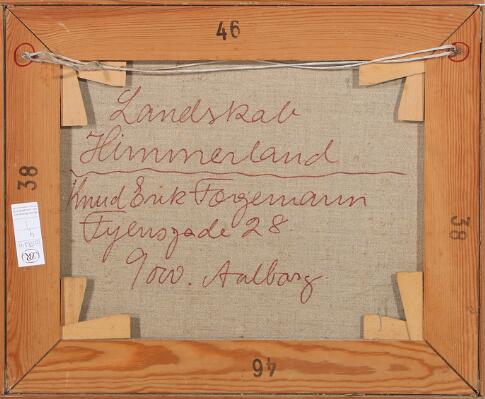 46
Landskab
Himmerland
Knud Erik Forgemann
Fyensgade 28.
9000. Aalborg.
38
38
46